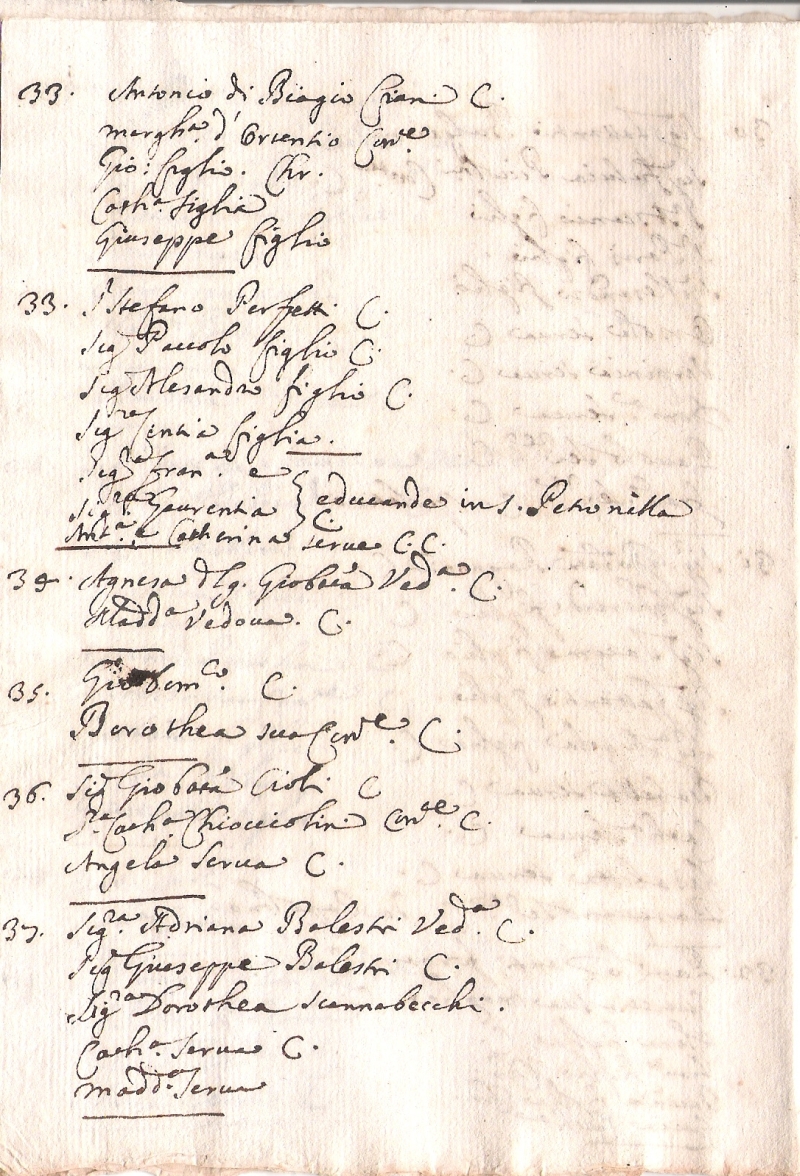 33. Antonio di Biagio Cian C.
Margh.a d'Orientio Con.e
Gio: figlio. Chr.
Cath.a figlia
Giuseppe figlio
33. Stefano Perfetti C.
Sig.r Paccolo figlio C.
Sig.r Alesandro figlio C.
Sig.ra Cintia figlia.
Sig.ra Fran.a e
Sig.ra Laurentia } educande in S. Petronilla
Ant.a e Catherina serve C. C.
34. Agnesa dlq. Giobatta Ved.a C.
Madd.a Vedova. C.
35. Gio Dom.co C.
Dorothea sua Con.e C.
36. Sig.r Giobatta Cioli C
S.ra Cath.a Chiocciolini Con.e C.
Angela Serva C.
37. Sig.ra Adriana Balestri Ved.a C.
Sig.r Giuseppe Balestri C.
Sig.ra Dorothea Scannabecchi.
Cath.a Serva C.
Madd.a Serva